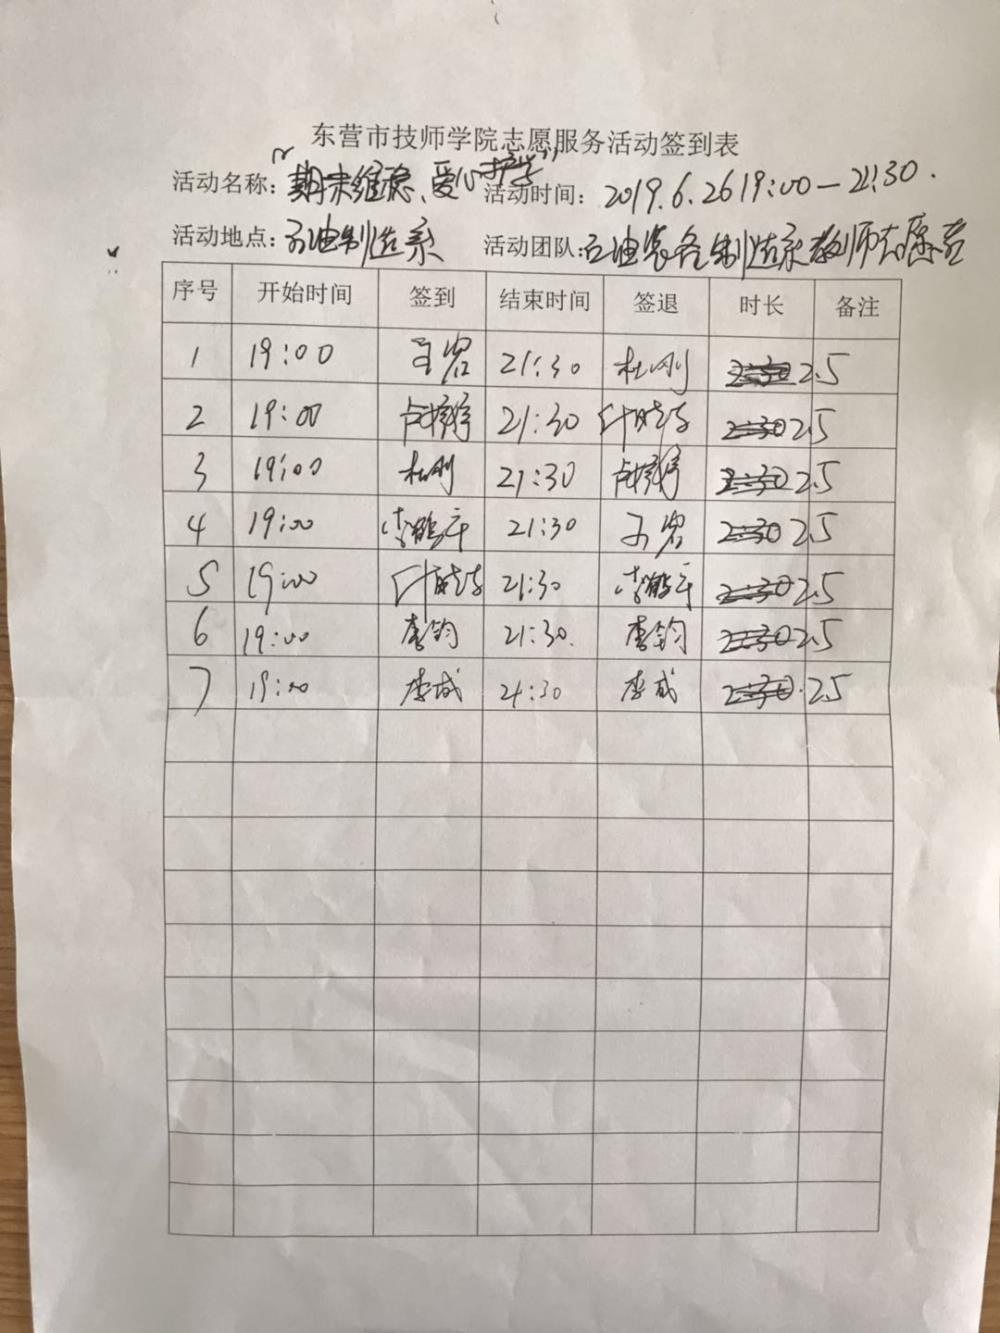 东营市技师学院志愿服务活动签到表
活动名称：“期末维稳、爱心护学” 活动时间：2019.6.26 19:00—21:30.
活动地点：石油制造系 活动团队：石油装备制造系教师志愿者
序号 开始时间 签到 结束时间 签退 时长 备注
1 19:00 21:30 杜刚 2.5
2 19:00 21:30 2.5
3 19:00 杜刚 21:30 2.5
4 19:00 21:30 2.5
5 19:00 21:30 2.5
6 19:00 李钧 21:30. 李钧 2.5
7 19:00 李成 21:30 李成 2.5